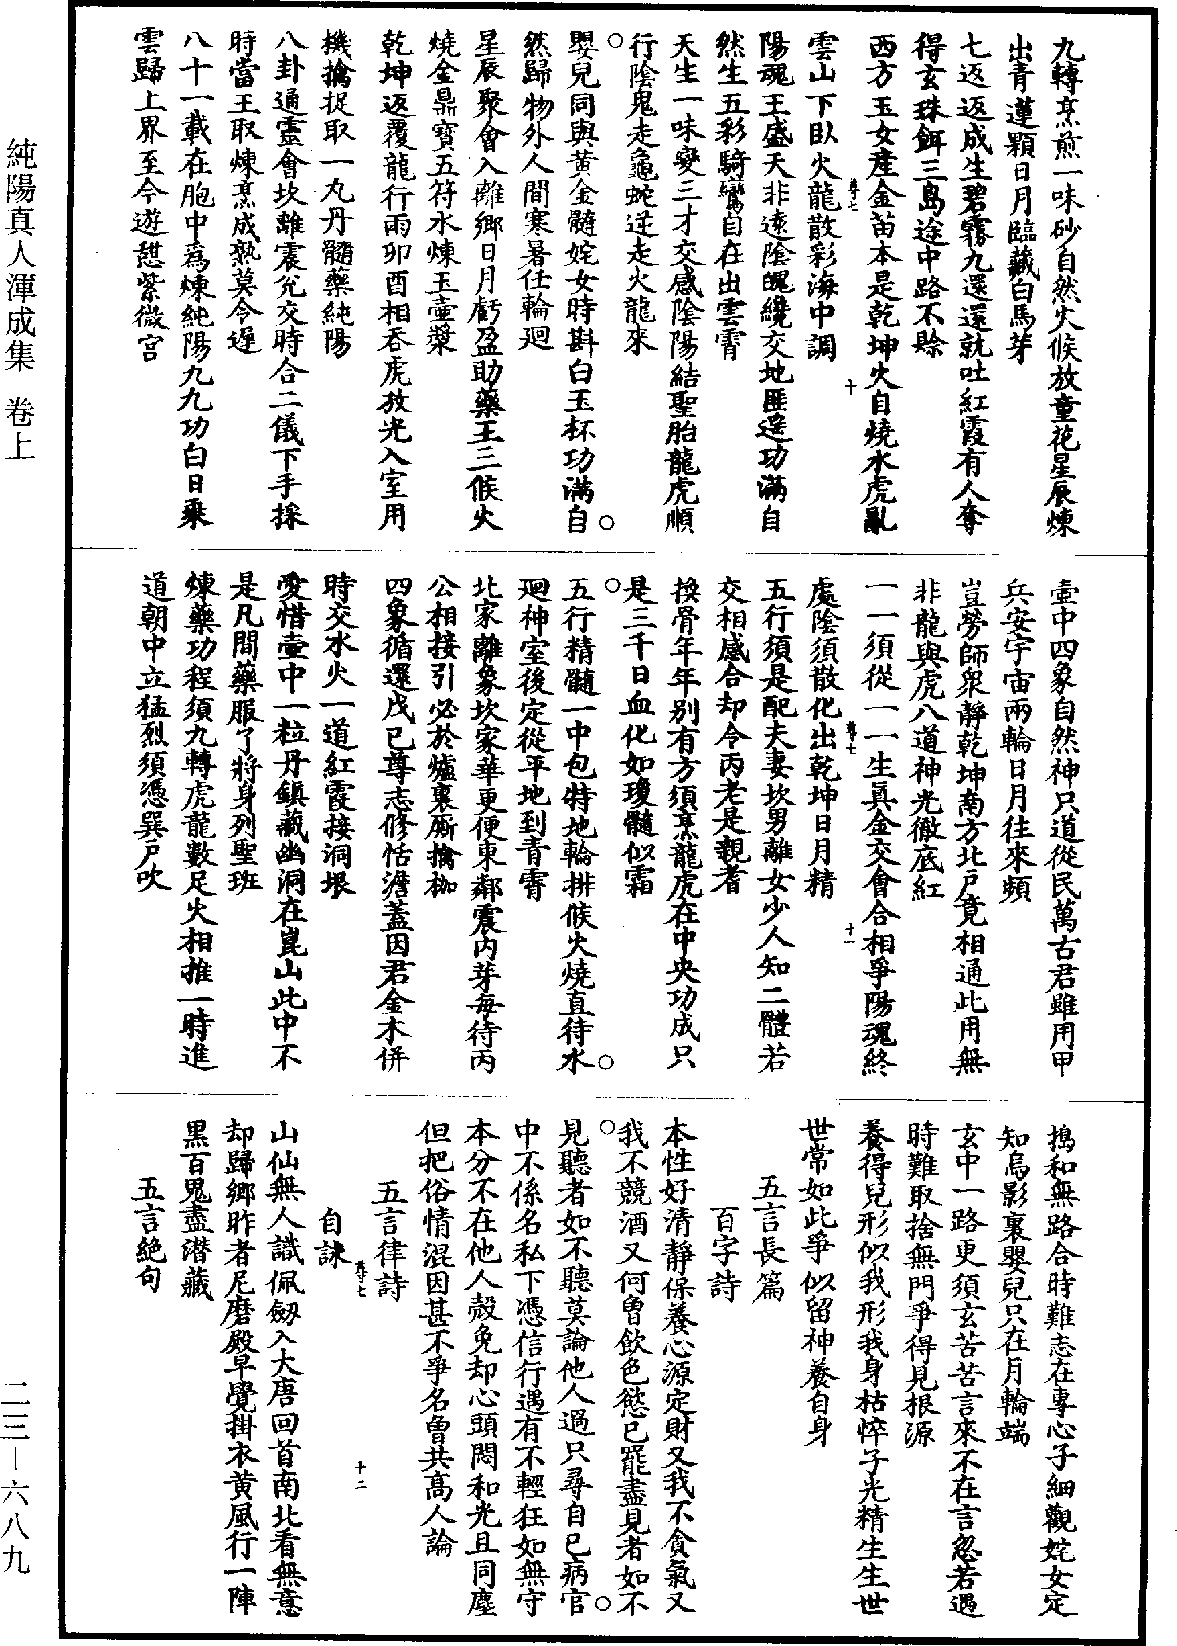 九轉烹煎一味砂自然火候放童花星辰煉
出青蓮顆日月臨藏白馬芽
七返返成生碧霧九還還就吐紅霞有人奪
得玄珠餌三島途中路不賒
西方玉女產金苗本是乾坤火自燒水虎亂
尊七
十
雲山下臥火龍散彩海中調
陽魂王盛天非遠陰魄纔交地匪遙功滿自
然生五彩騎鸞自在出雲霄
天生一味變三才交感陰陽結聖胎龍虎順
行陰鬼走龜蛇逆走火龍來
嬰兒同與黃金髓姹女時斟白玉杯功滿自
然歸物外人間寒暑任輪廻
星辰聚會入離鄉日月虧盈助藥王三候火
燒金鼎寶五符水煉玉壺漿
乾坤返覆龍行雨卯酉相吞虎放光入室用
機擒捉取一丸丹髓藥純陽
八卦通靈會坎離震兌交時合二儀下手採
時當王取煉烹成熟莫令遲
八十一載在胞中爲煉純陽九九功白日乘
雲歸上界至今遊憇紫微宫
壺中四象自然神只道從民萬古君雖用甲
兵安宇宙兩輪日月往來頻
豈勞師衆靜乾坤南方北戶竟相通此用無
非龍與虎八道神光徹底紅
一一須從一一生真金交會合相爭陽魂終
十一
處陰須散化出乾坤日月精
五行須是配夫妻坎男離女少人知二體若
交相感合却令丙老是親者
換骨年年別有方須烹龍虎在中央功成只
是三千日血化如瓊髓似霜
五行精髓一中包特地輪排候火燒直待水
廻神室後定從平地到青霄
北家離象坎家華更便東鄰震内芽每待丙
公相接引必於爐裏厮擒枷
四象循還戊己尊志修恬澹蓋因君金木併
時交水火一道紅霞接洞垠
愛惜壺中一粒丹鎮藏幽洞在崑山此中不
是凡間藥服了將身列聖班
煉藥功程須九轉虎龍數足火相推一時進
道朝中立猛烈須憑巽戶吹
搗和無路合時難志在專心子細觀姹女定
知烏影裏嬰兒只在月輪端
玄中一路更須玄苦苦言來不在言忽若遇
時難取捨無門爭得見根源
養得兒形似我形我身枯悴子光精生生世
世常如此爭似留神養自身
五言長篇
百字詩
本性好清靜保養心源定財又我不貪氣又
我不競酒又何曾飲色慾已罷盡見者如不
見聽者如不聽莫論他人過只尋自己病官
中不係名私下憑信行遇有不輕狂如無守
本分不在他人殼免却心頭悶和光且同塵
但把俗情混因甚不爭名曾共高人論
五言律詩
十二
自詠
山仙無人識佩劒入大唐回首南北看無意
却歸鄉昨者尼磨殿早覺掛衣黃風行一陣
黑百鬼盡潜藏
五言絶句
純陽真人渾成集 卷上
二三—六八九